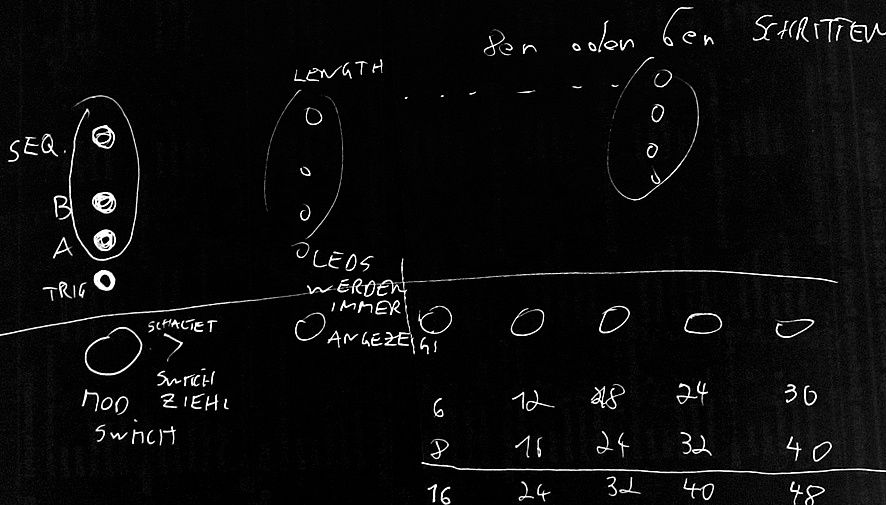 8en oden 6en SCHRITTEN
LENGTH
SEQ.
B
A
TRIG
LEDS
WERDEN
IMMER
ANGEZEIGT
SCHALTET
MOD
SWITCH
SWITCH
ZIEHL
6 12 18 24 30
8 16 24 32 40
16 24 32 40 48